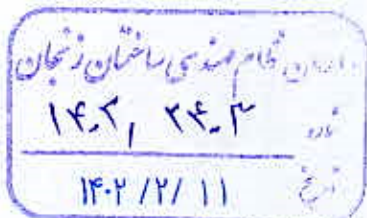 سازمان نظام مهندسی ساختمان زنجان
شماره ۱۴۰۲, ۲۴۰۳
تاریخ ۱۴۰۲ /۲/ ۱۱